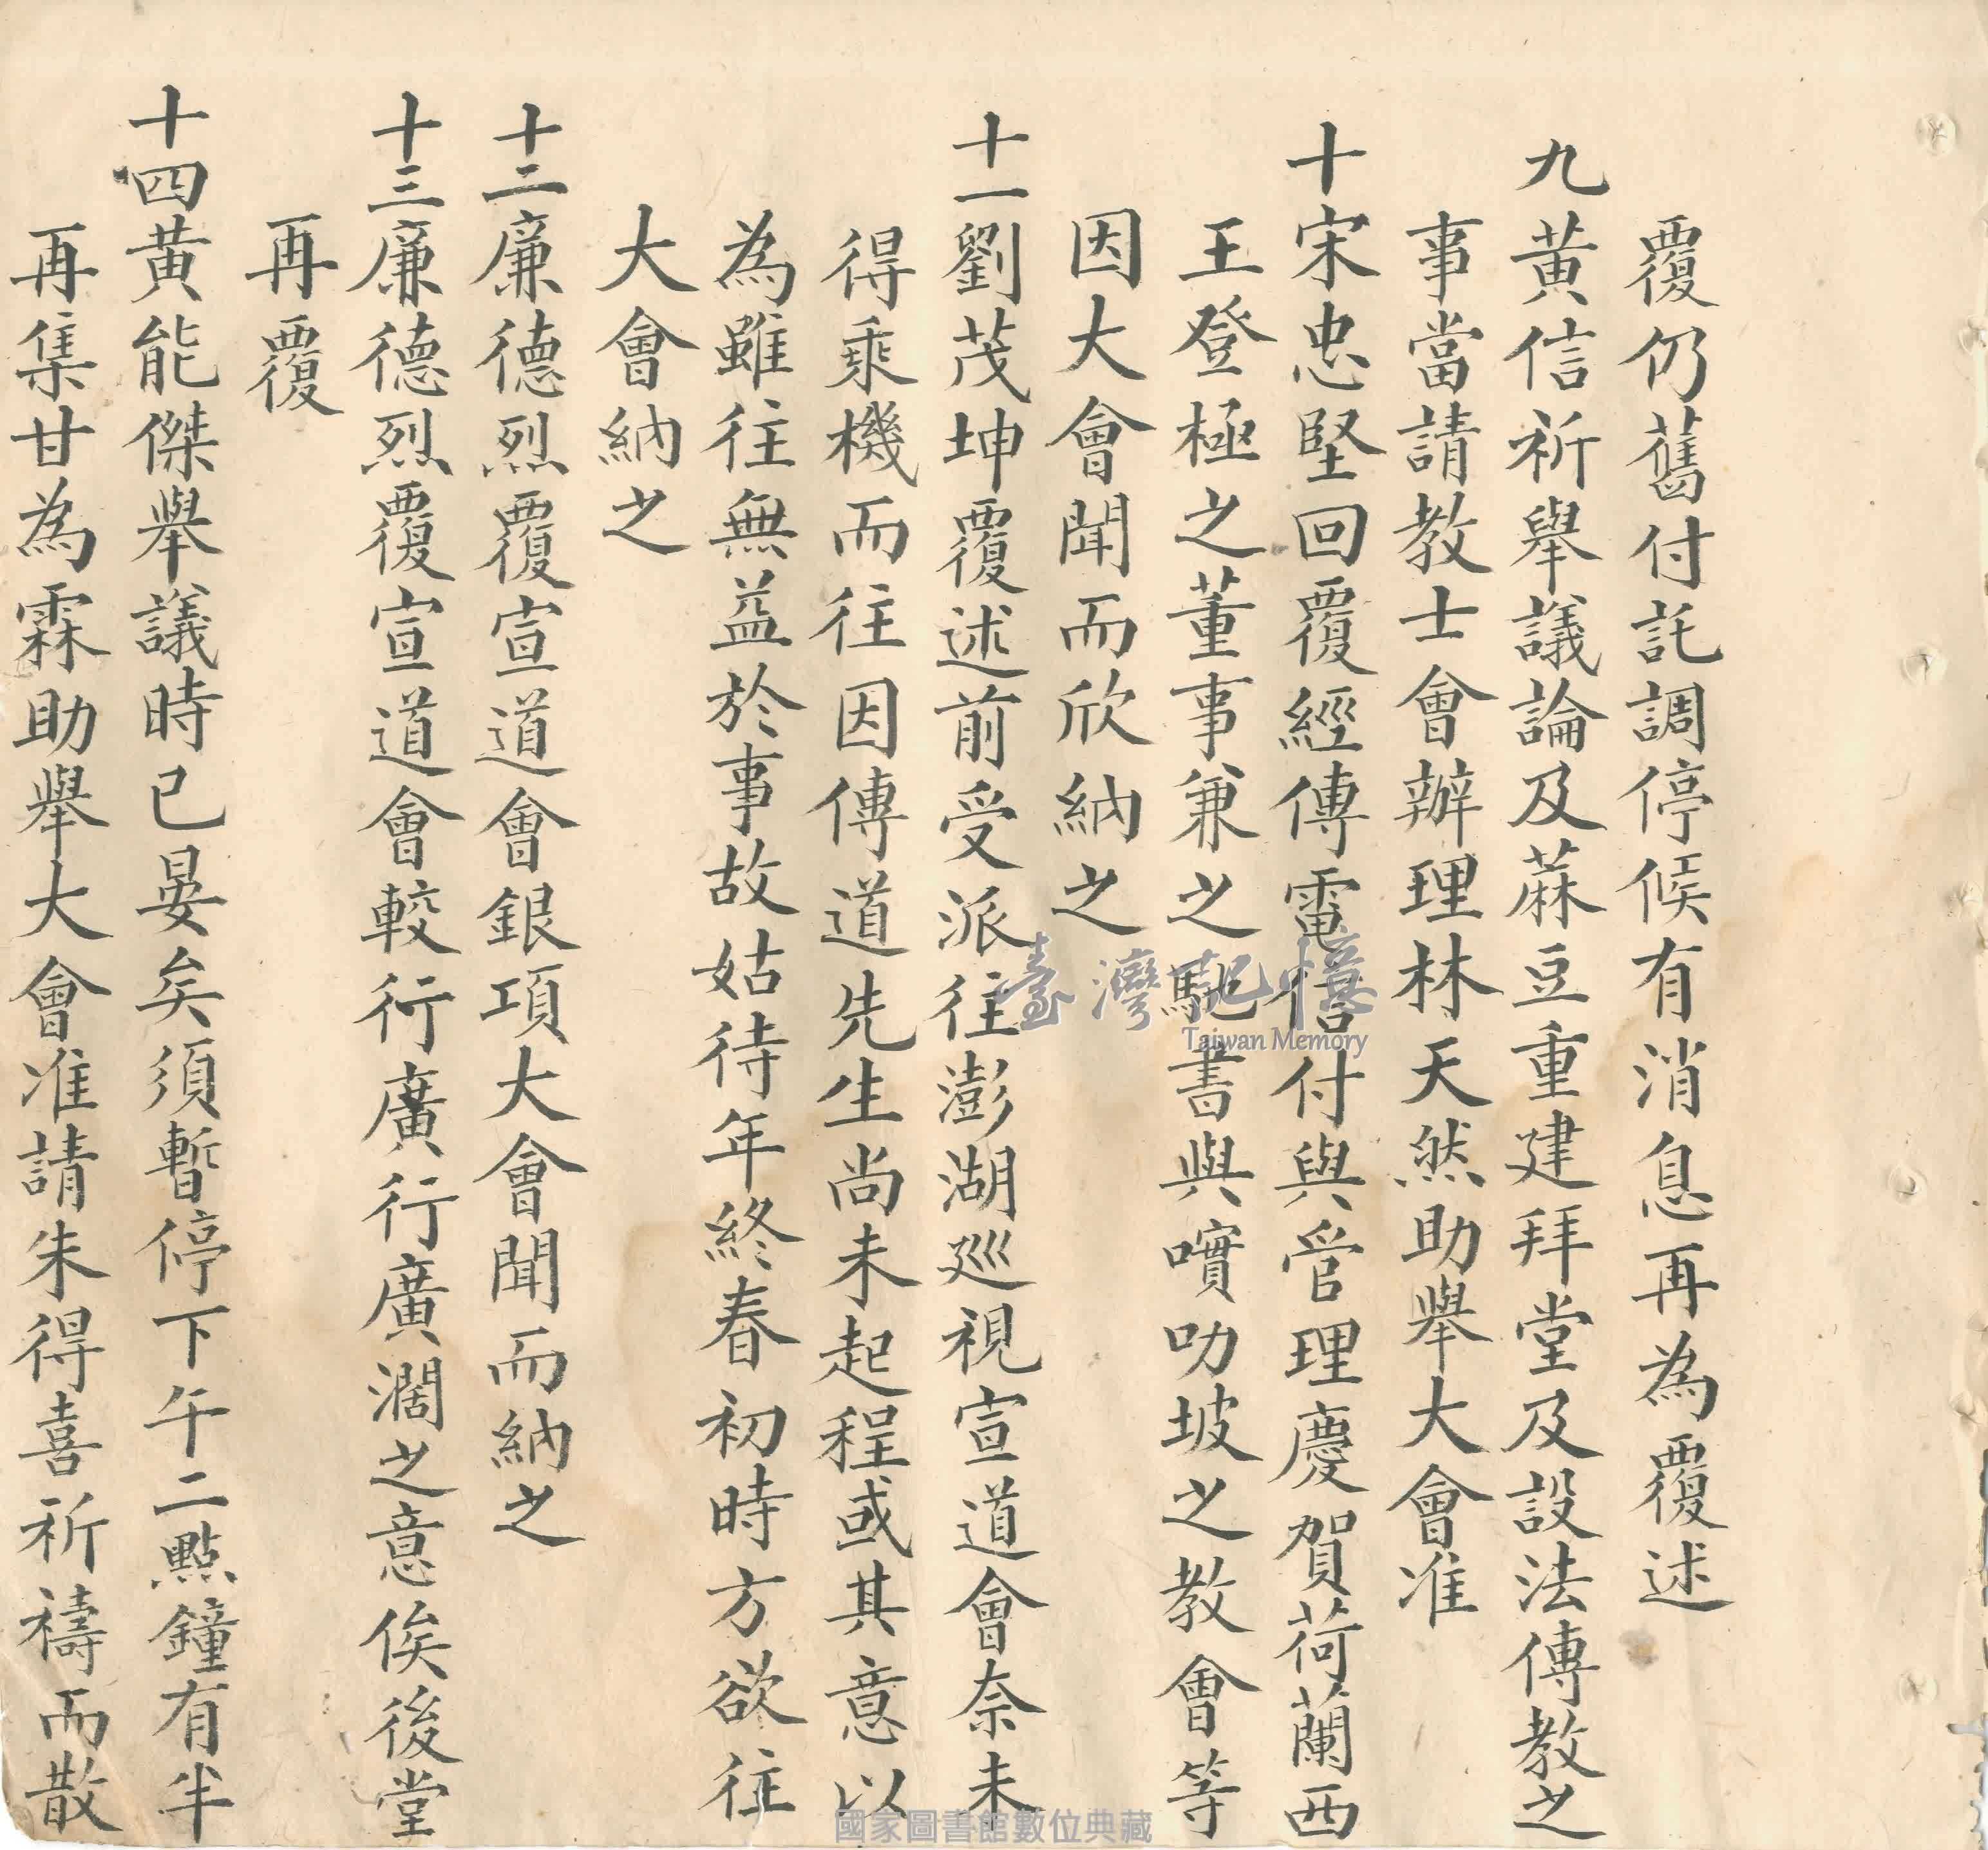 覆仍舊付託調停候有消息再為覆述
九黃信祈舉議論及蔴豆重建拜堂及設法傳教之
事當請教士會辦理林天然助舉大會准
十宋忠堅回覆經傳電信付與管理慶賀荷蘭西
王登極之董事兼之馳書與嘪叻坡之教會等
因大會聞而欣納之
十一劉茂坤覆述前受派往澎湖巡視宣道會奈未
得乘機而往因傳道先生尚未起程或其意以
為雖往無益於事故姑待年終春初時方欲往
大會納之
十二廉德烈覆宣道會銀項大會聞而納之
十三廉德烈覆宣道會較行廣行廣濶之意俟後堂
再覆
十四黃能傑舉議時已晏矣須暫停下午二點鐘有半
再集甘為霖助舉大會准請朱得喜祈禱而散
臺灣記憶
Taiwan Memory
國家圖書館數位典藏